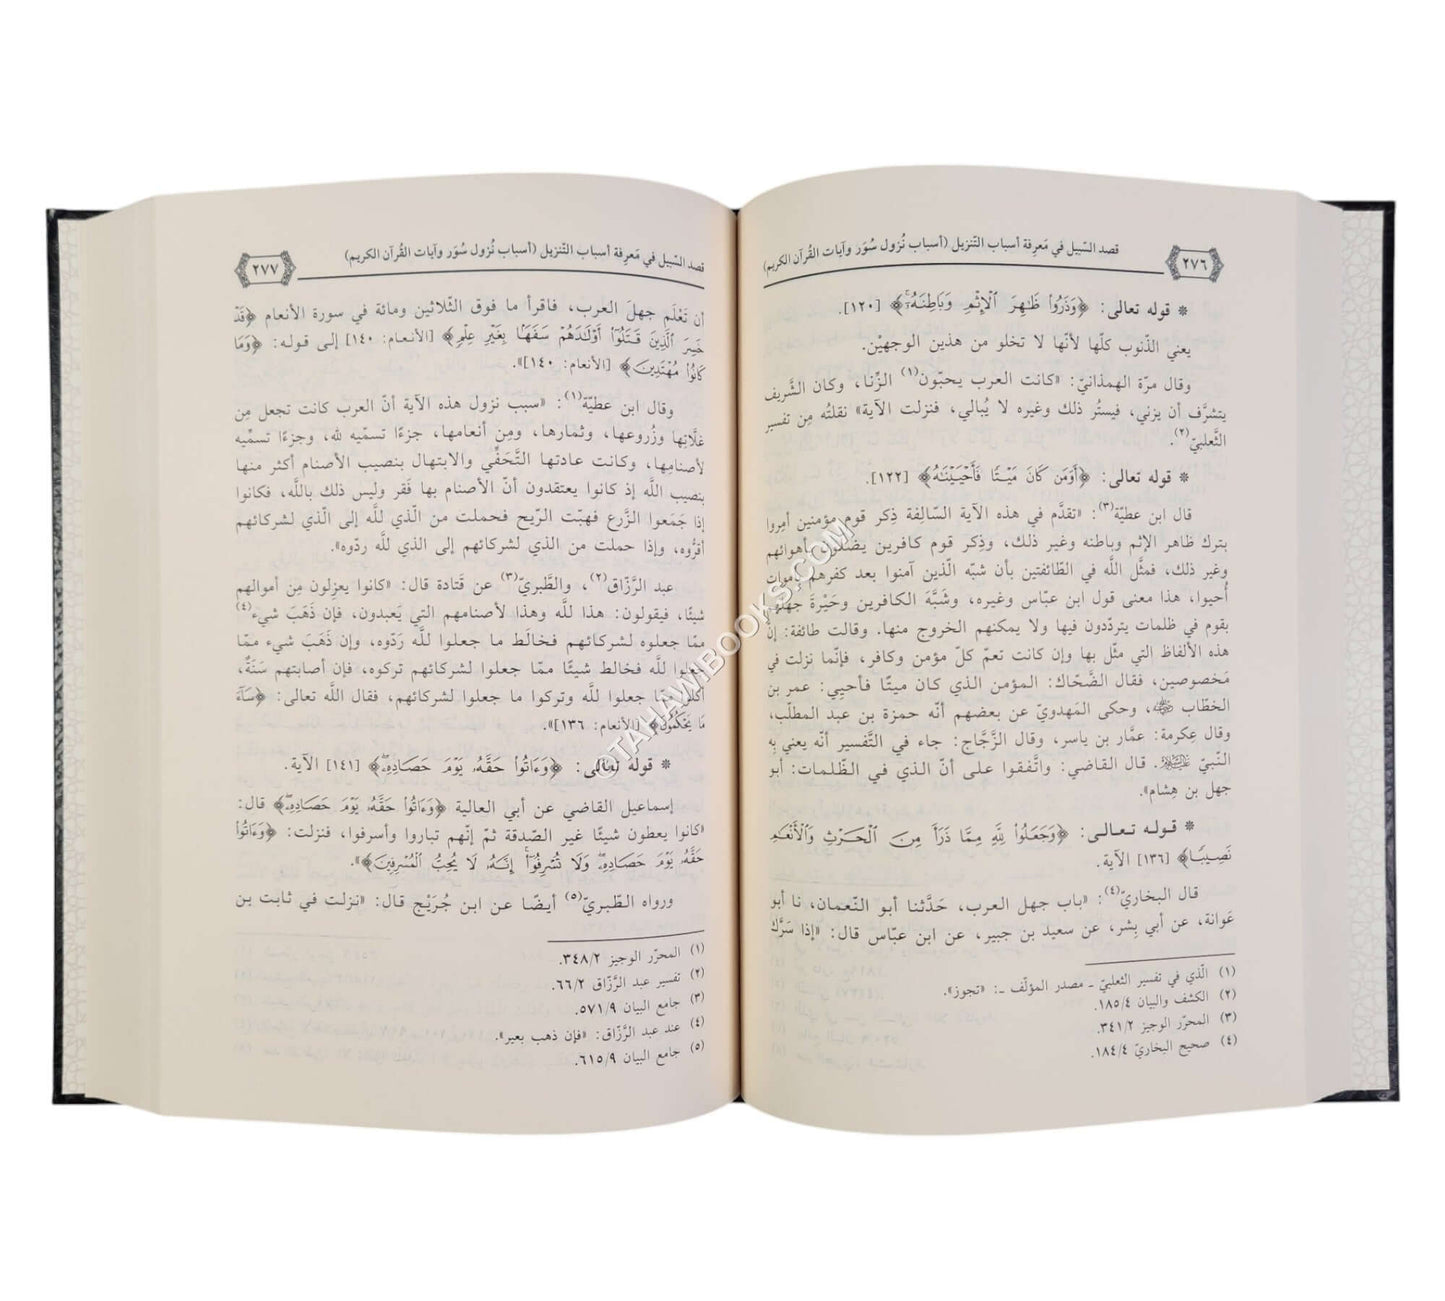 ٢٧٦
قصد السّبيل في مَعرِفة أسباب التّنزيل (أسباب نُزول سُوَر وآيات القُرآن الكريم)
* قوله تعالى: ﴿وَذَرُوا۟ ظَـٰهِرَ ٱلْإِثْمِ وَبَاطِنَهُۥٓ﴾ [١٢٠].
يعني الذّنوب كلّها لأنّها لا تخلو من هذين الوجهيْن.
وقال مرّة الهمذانيّ: «كانت العرب يحبّون(١) الزّنا، وكان الشَّريف
يتشرَّف أن يزني، فيستُر ذلك وغيره لا يُبالي، فنزلت الآية» نقلتُه مِن تفسير
الثَّعلبيّ(٢).
* قوله تعالى: ﴿أَوَمَن كَانَ مَيْتًا فَأَحْيَيْنَـٰهُ﴾ [١٢٢].
قال ابن عطيّة(٣): «تقدَّم في هذه الآية السّالِفة ذِكر قوم مؤمنين أمِروا
بترك ظاهر الإثم وباطنه وغير ذلك، وذِكر قوم كافرين يضلّون بأهوائهم
وغير ذلك، فمثَّل اللَّه في الطّائفتين بأن شبّه الّذين آمنوا بعد كفرهم بأموات
أُحيوا، هذا معنى قول ابن عبّاس وغيره، وشَبَّهَ الكافرين وحَيْرةَ جهلهم
بقوم في ظلمات يتردّدون فيها ولا يمكنهم الخروج منها. وقالت طائفة: إنّ
هذه الألفاظ التي مثّل بها وإن كانت تعمّ كلّ مؤمن وكافر، فإنّما نزلت في
مَخصوصين، فقال الضَّحّاك: المؤمن الذي كان ميتًا فأحيي: عمر بن
الخطّاب ﷺ، وحكى المَهدويّ عن بعضهم أنّه حمزة بن عبد المطلّب،
وقال عِكرمة: عمَّار بن ياسر، وقال الزَّجَّاج: جاء في التَّفسير أنّه يعني بِه
النّبيّ. قال القاضي: واتَّفقوا على أنّ الذي في الظّلمات: أبو
جهل بن هِشام».
* قوله تعالى: ﴿وَجَعَلُوا۟ لِلَّهِ مِمَّا ذَرَأَ مِنَ ٱلْحَرْثِ وَٱلْأَنْعَـٰمِ
نَصِيبًا﴾ [١٣٦] الآية.
قال البخاريّ(٤): «باب جهل العرب، حَدَّثنا أبو النّعمان، نا أبو
عَوانة، عن أبي بِشر، عن سعيد بن جبير، عن ابن عبّاس قال: «إذا سَرَّكَ
(١) الّذي في تفسير الثعلبيّ ـ مصدر المؤلّف ـ: «تجوز».
(٢) الكشف والبيان ١٨٥/٤.
(٣) المحرّر الوجيز ٣٤١/٢.
(٤) صحيح البخاريّ ١٨٤/٤.
٢٧٧
قصد السّبيل في مَعرِفة أسباب التّنزيل (أسباب نُزول سُوَر وآيات القُرآن الكريم)
أن تَعْلَم جهلَ العرب، فاقرأ ما فوق الثّلاثين ومائة في سورة الأنعام ﴿قَدْ
خَسِرَ ٱلَّذِينَ قَتَلُوٓا۟ أَوْلَـٰدَهُمْ سَفَهًۢا بِغَيْرِ عِلْمٍ﴾ [الأنعام: ١٤٠] إلى قوله: ﴿وَمَا
كَانُوا۟ مُهْتَدِينَ﴾ [الأنعام: ١٤٠]».
وقال ابن عطيّة(١): «سبب نزول هذه الآية أنّ العرب كانت تجعل مِن
غلَّاتِها وزُروعها، وثمارها، ومِن أنعامها، جزءًا تسمّيه لله، وجزءًا تسمِّيه
لأصنامها، وكانت عادتها التَّحَفِّي والابتهال بنصيب الأصنام أكثر منها
بنصيب اللَّه إذ كانوا يعتقدون أنّ الأصنام بها فَقر وليس ذلك باللَّه، فكانوا
إذا جَمَعوا الزَّرع فهبّت الرّيح فحملت من الّذي للَّه إلى الّذي لشركائهم
أقرُّوه، وإذا حملت من الذي لشركائهم إلى الذي للَّه ردّوه».
عبد الرَّزّاق(٢)، والطَّبريّ(٣) عن قَتادة قال: «كانوا يعزِلون مِن أموالهم
شيئًا، فيقولون: هذا للَّه وهذا لأصنامهم التي يَعبدون، فإن ذَهَبَ شيء(٤)
ممّا جعلوه لشركائهم فخالَط ما جعلوا للَّه رَدّوه، وإن ذَهَبَ شيء ممّا
جعلوا للَّه فخالط شيئًا ممّا جعلوا لشركائهم تركوه، فإن أصابتهم سَنَةٌ،
أكلوا ما جعلوا للَّه وتركوا ما جعلوا لشركائهم، فقال اللَّه تعالى: ﴿سَآءَ
مَا يَحْكُمُونَ﴾ [الأنعام: ١٣٦]».
* قوله تعالى: ﴿وَءَاتُوا۟ حَقَّهُۥ يَوْمَ حَصَادِهِۦ﴾ [١٤١] الآية.
إسماعيل القاضي عن أبي العالية ﴿وَءَاتُوا۟ حَقَّهُۥ يَوْمَ حَصَادِهِۦ﴾ قال:
«كانوا يعطون شيئًا غير الصّدقة ثمّ إنّهم تباروا وأسرفوا، فنزلت: ﴿وَءَاتُوا۟
حَقَّهُۥ يَوْمَ حَصَادِهِۦ وَلَا تُسْرِفُوٓا۟ إِنَّهُۥ لَا يُحِبُّ ٱلْمُسْرِفِينَ﴾».
ورواه الطّبريّ(٥) أيضًا عن ابن جُرَيْج قال: «نزلت في ثابت بن
(١) المحرّر الوجيز ٣٤٨/٢.
(٢) تفسير عبد الرَّزّاق ٦٦/٢.
(٣) جامع البيان ٥٧١/٩.
(٤) عند عبد الرَّزّاق: «فإن ذهب بعير».
(٥) جامع البيان ٦١٥/٩.
©TAHAWIBOOKS.COM